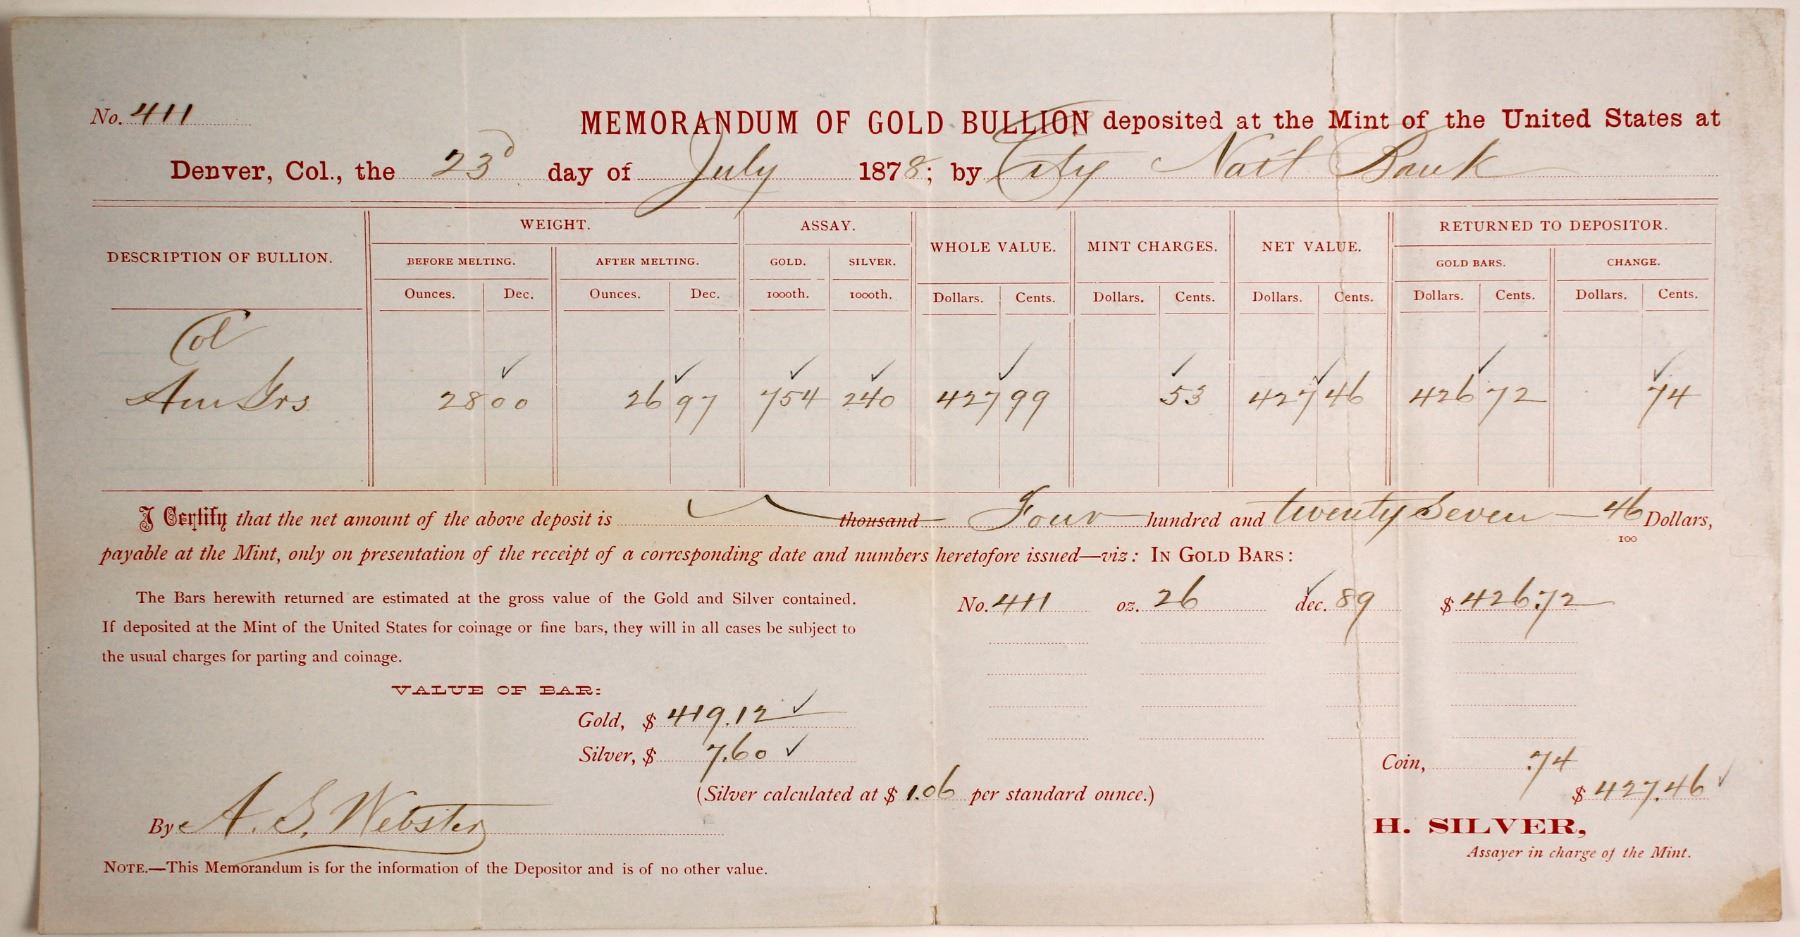 No. 411
MEMORANDUM OF GOLD BULLION deposited at the Mint of the United States at
Denver, Col., the 23d day of July 1878; by City Natl Bank
DESCRIPTION OF BULLION. WEIGHT. ASSAY. WHOLE VALUE. MINT CHARGES. NET VALUE. RETURNED TO DEPOSITOR.
BEFORE MELTING. AFTER MELTING. GOLD. SILVER. GOLD BARS. CHANGE.
Ounces. Dec. Ounces. Dec. 1000th. 1000th. Dollars. Cents. Dollars. Cents. Dollars. Cents. Dollars. Cents. Dollars. Cents.
Col
28 00 26 97 754 240 427 99 53 427 46 426 72 74
I Certify that the net amount of the above deposit is thousand Four hundred and twenty Seven 46/100 Dollars,
payable at the Mint, only on presentation of the receipt of a corresponding date and numbers heretofore issued—viz: IN GOLD BARS:
The Bars herewith returned are estimated at the gross value of the Gold and Silver contained.
If deposited at the Mint of the United States for coinage or fine bars, they will in all cases be subject to
the usual charges for parting and coinage.
No. 411 oz. 26 dec. 89 $ 426.72
VALUE OF BAR:
Gold, $ 419.12
Silver, $ 7.60
(Silver calculated at $ 1.06 per standard ounce.)
Coin, .74
$ 427.46
By A. S. Webster
H. SILVER,
Assayer in charge of the Mint.
NOTE.—This Memorandum is for the information of the Depositor and is of no other value.